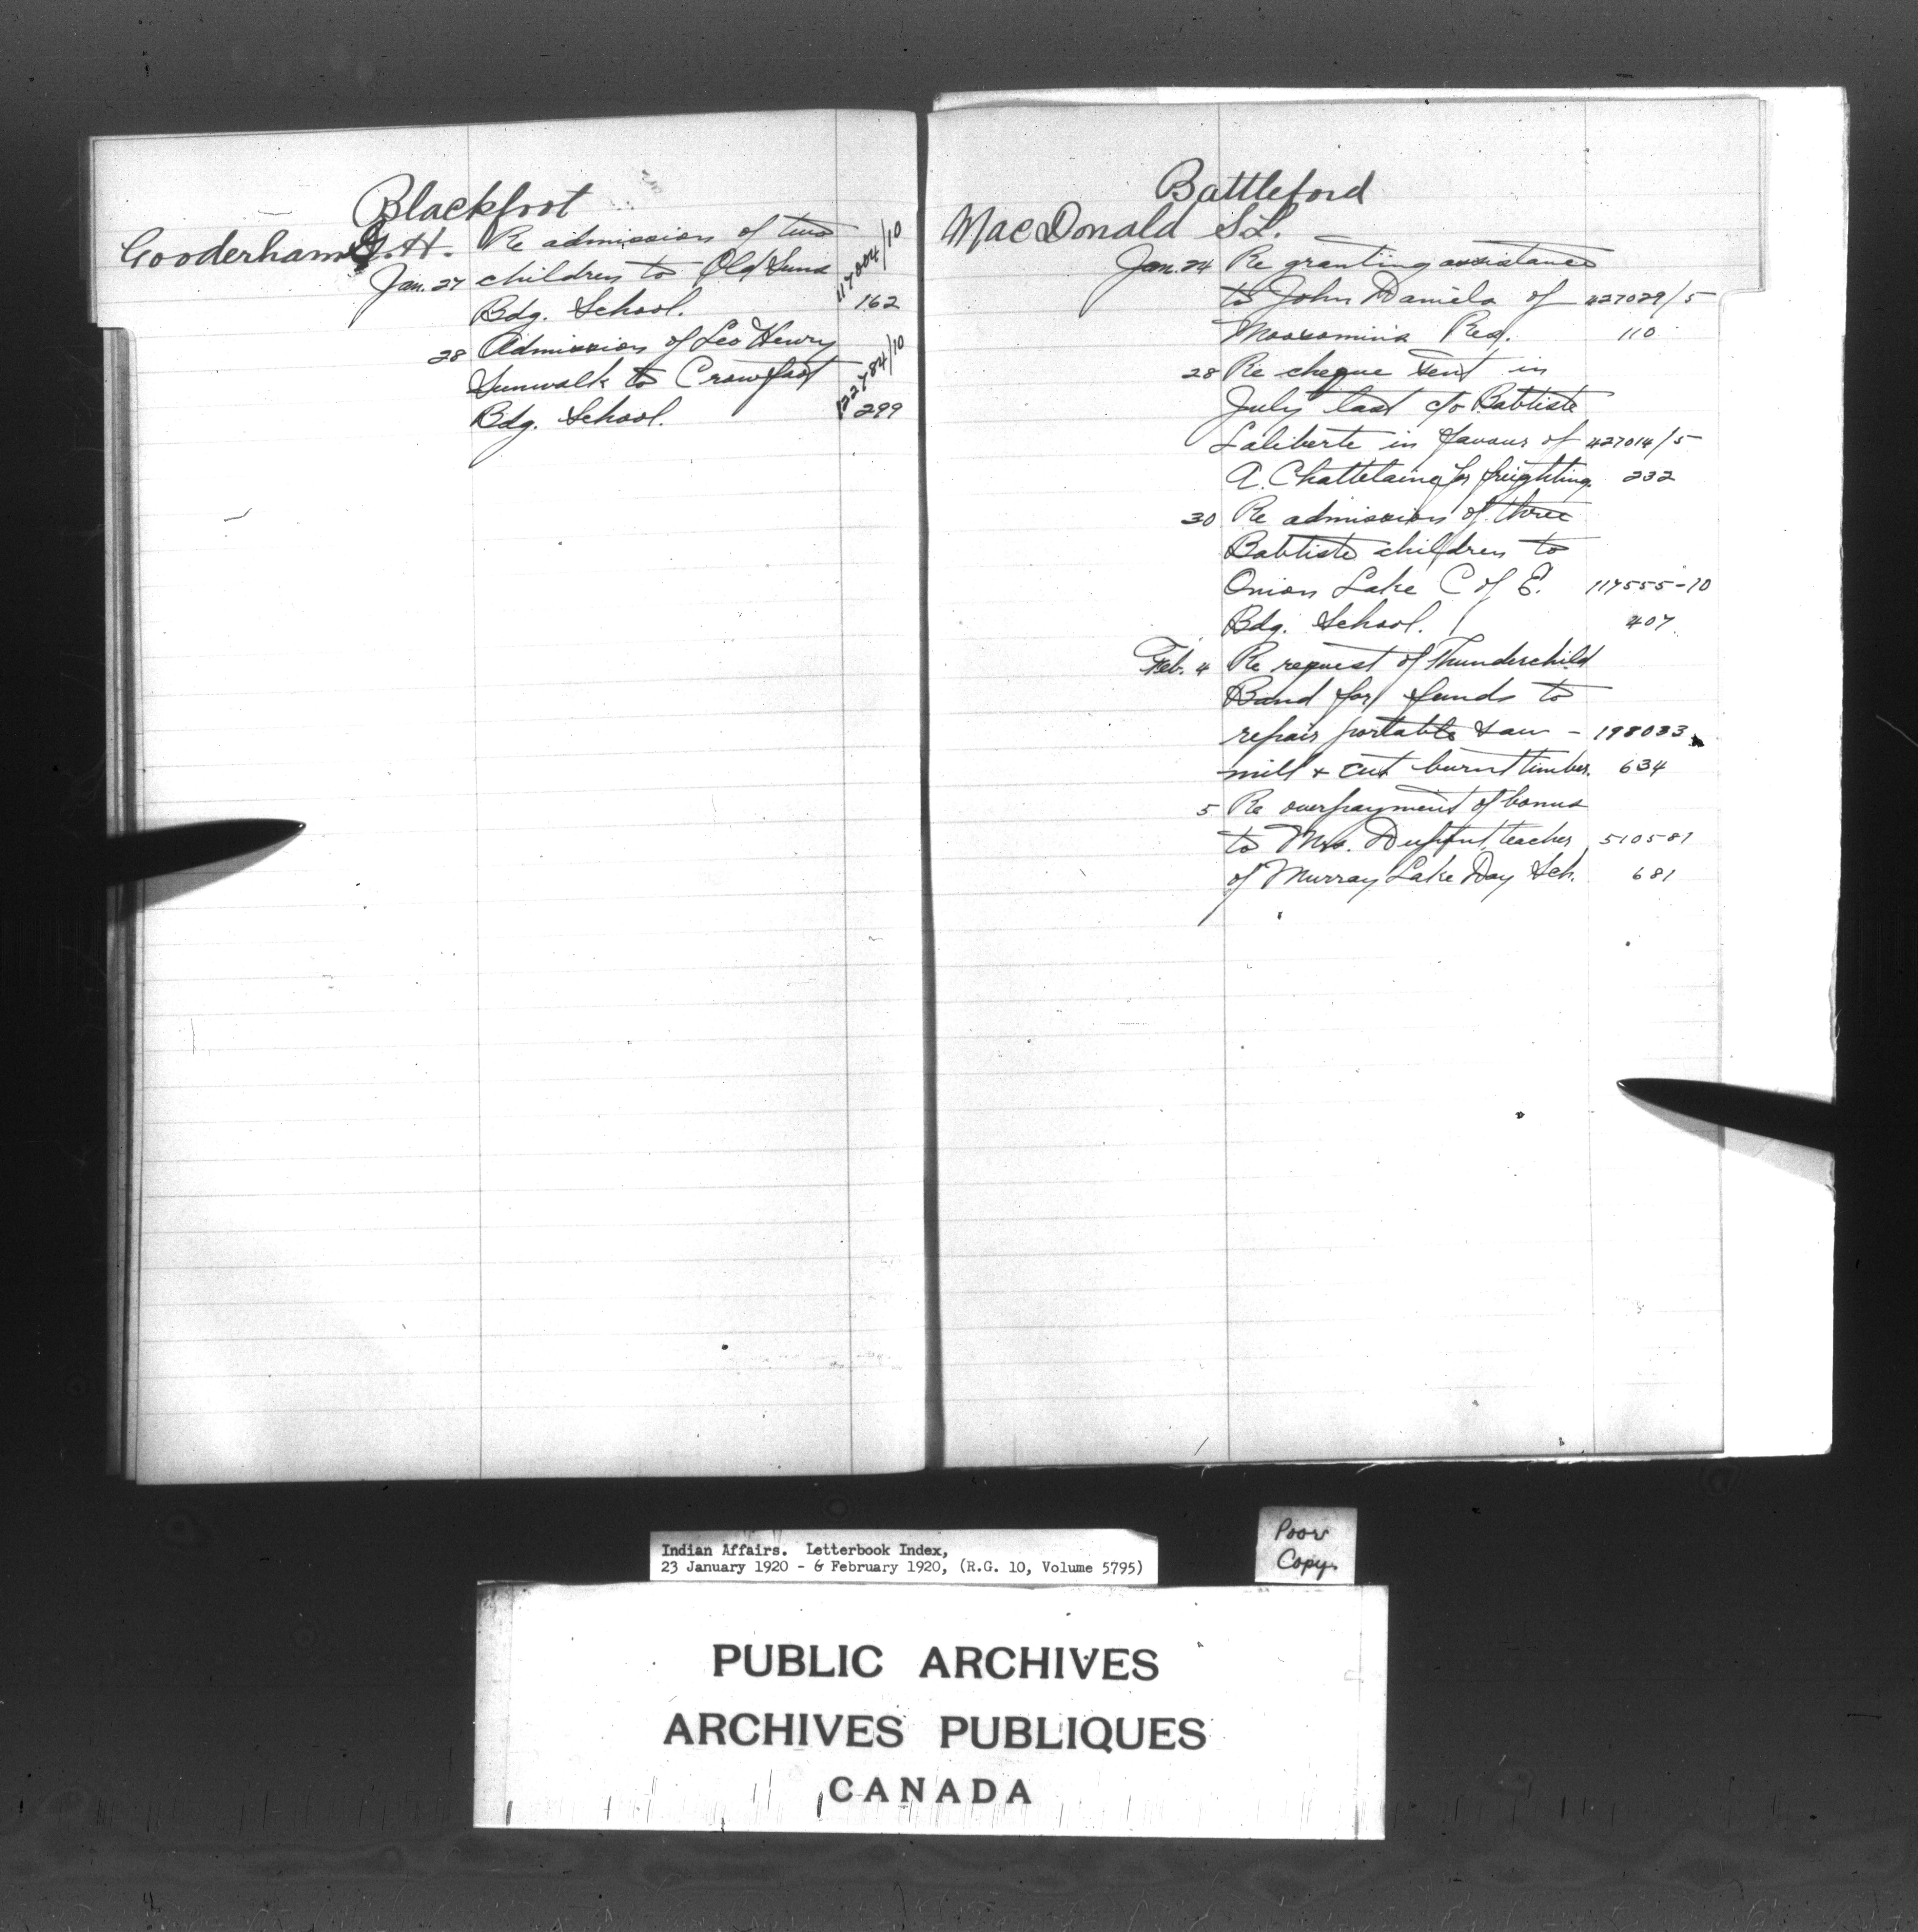 Blackfoot
Gooderham G.H.
Re admission of two
117004/10
Jan. 27 children to Old Suns
Bdg. School. 162
28 Admission of Leo Henry
Sunwalk to Crowfoot
122784/10
Bdg. School. 299
Battleford
MacDonald S.L.
Jan. 24 Re granting assistance
to John Daniels of 427029/5
Moosomin's Res. 110
28 Re cheque sent in
July last c/o Babtiste
Laliberte in favour of 427014/5
A. Chattelaine for freighting. 232
30 Re admission of three
Babtiste children to
Onion Lake C of E. 117555-10
Bdg. School. 407
Feb. 4 Re request of Thunderchild
Band for funds to
repair portable saw - 198033
mill + cut burnt timber. 634
5 Re overpayment of bonus
to Mrs. teacher 510581
of Murray Lake Day Sch. 681
Indian Affairs. Letterbook Index,
23 January 1920 - 6 February 1920, (R.G. 10, Volume 5795)
Poor
Copy
PUBLIC ARCHIVES
ARCHIVES PUBLIQUES
CANADA